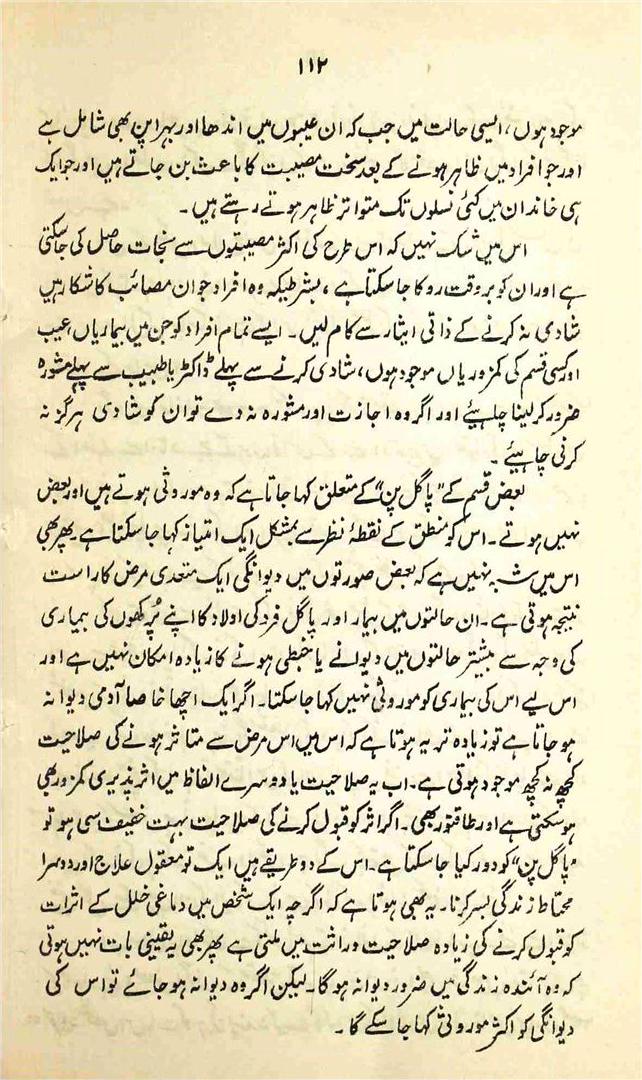 ۱۱۲
موجود ہوں، ایسی حالت میں جب کہ ان عیبوں میں اندھا اور بہرا پن بھی شامل ہے
اور جو افراد میں ظاہر ہونے کے بعد سخت مصیبت کا باعث بن جاتے ہیں اور جو ایک
ہی خاندان میں کئی نسلوں تک متواتر ظاہر ہوتے رہتے ہیں۔
اس میں شک نہیں کہ اس طرح کی اکثر مصیبتوں سے نجات حاصل کی جا سکتی
ہے اور ان کو بروقت روکا جا سکتا ہے، بشرطیکہ وہ افراد جو ان مصائب کا شکار ہیں
شادی نہ کرنے کے ذاتی ایثار سے کام لیں۔ ایسے تمام افراد کو جن میں بیماریاں، عیب
اور کسی قسم کی کمزوریاں موجود ہوں، شادی کرنے سے پہلے ڈاکٹر یا طبیب سے پہلے مشورہ
ضرور کر لینا چاہیئے اور اگر وہ اجازت اور مشورہ نہ دے تو ان کو شادی ہرگز نہ
کرنی چاہیئے۔
بعض قسم کے "پاگل پن" کے متعلق کہا جاتا ہے کہ وہ موروثی ہوتے ہیں اور بعض
نہیں ہوتے۔ اس کو منطق کے نقطۂ نظر سے بمشکل ایک امتیاز کہا جا سکتا ہے۔ پھر بھی
اس میں شبہ نہیں ہے کہ بعض صورتوں میں دیوانگی ایک متعدی مرض کا راست
نتیجہ ہوتی ہے۔ ان حالتوں میں بیمار اور پاگل فرد کی اولاد کا اپنے پُرکھوں کی بیماری
کی وجہ سے بیشتر حالتوں میں دیوانے یا خبطی ہونے کا زیادہ امکان نہیں ہے اور
اس لیے اس کی بیماری کو موروثی نہیں کہا جا سکتا۔ اگر ایک اچھا خاصا آدمی دیوانہ
ہو جاتا ہے تو زیادہ تر یہ ہوتا ہے کہ اس میں اس مرض سے متاثر ہونے کی صلاحیت
کچھ نہ کچھ موجود ہوتی ہے۔ اب یہ صلاحیت یا دوسرے الفاظ میں اثر پذیری کمزور بھی
ہو سکتی ہے اور طاقتور بھی۔ اگر اثر کو قبول کرنے کی صلاحیت بہت خفیف سی ہو تو
"پاگل پن" کو دور کیا جا سکتا ہے۔ اس کے دو طریقے ہیں ایک تو معقول علاج اور دوسرا
محتاط زندگی بسر کرنا۔ یہ بھی ہوتا ہے کہ اگرچہ ایک شخص میں دماغی خلل کے اثرات
کو قبول کرنے کی زیادہ صلاحیت وراثت میں ملتی ہے پھر بھی یہ یقینی بات نہیں ہوتی
کہ وہ آئندہ زندگی میں ضرور دیوانہ ہوگا۔ لیکن اگر وہ دیوانہ ہو جائے تو اس کی
دیوانگی کو اکثر موروثی کہا جا سکے گا۔